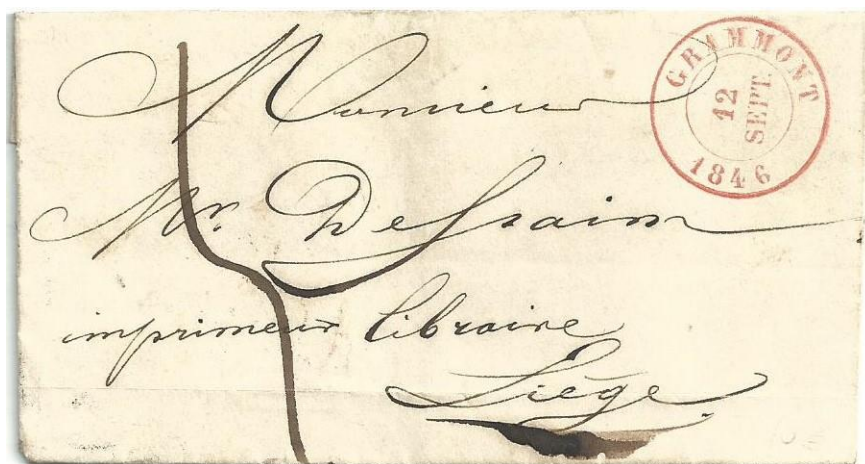 GRAMMONT
12
SEPT.
1846
Monsieur
Mr. Dessain
imprimeur libraire
Liége.